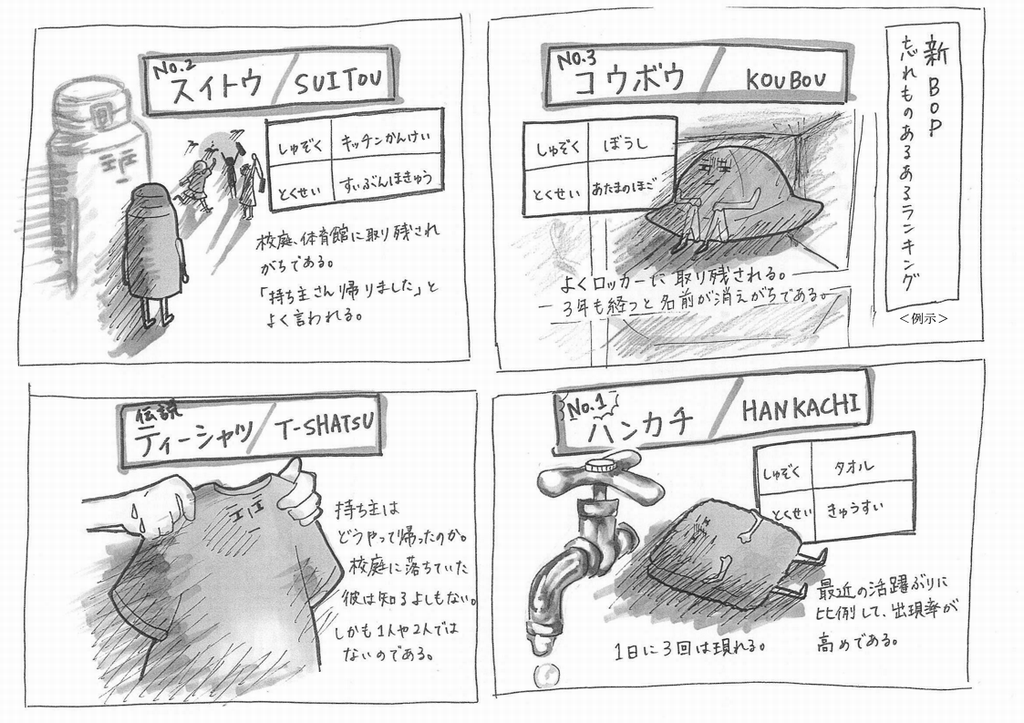 新BOP
忘れものあるあるランキング
＜例示＞
No.3
コウボウ／KOUBOU
しゅぞく ぼうし
とくせい あたまのほご
よくロッカーに取り残される。
3年も経つと名前が消えがちである。
No.2
スイトウ／SUITOU
しゅぞく キッチンかんけい
とくせい すいぶんほきゅう
校庭、体育館に取り残され
がちである。
「持ち主さん帰りました」と
よく言われる。
No.1
ハンカチ／HANKACHI
しゅぞく タオル
とくせい きゅうすい
最近の活躍ぶりに
比例して、出現率が
高めである。
1日に3回は現れる。
伝説
ティーシャツ／T-SHATSU
持ち主は
どうやって帰ったのか。
校庭に落ちていた
彼は知るよしもない。
しかも1人や2人では
ないのである。